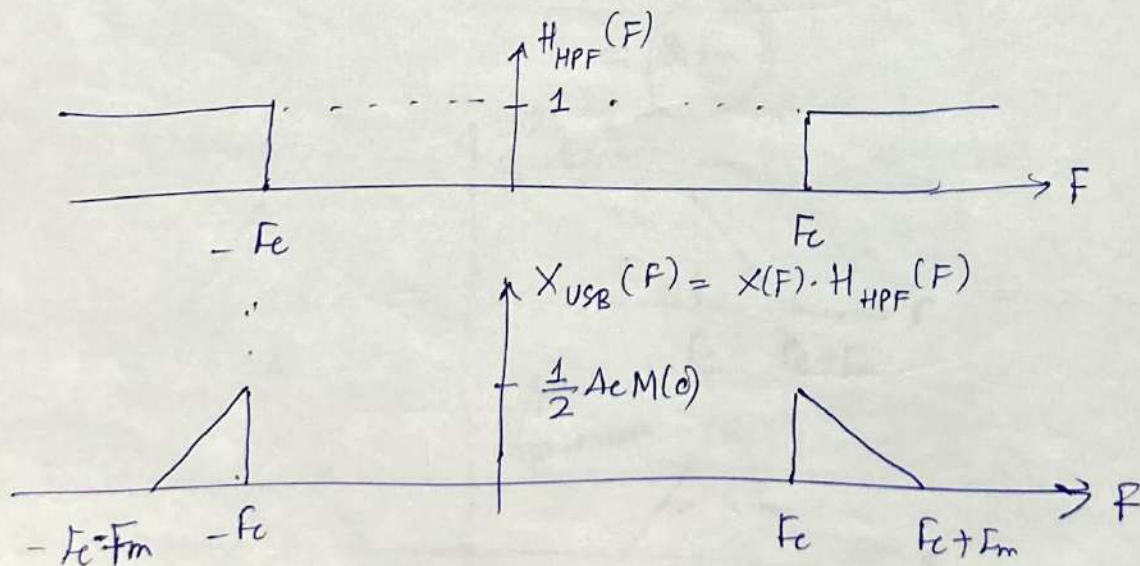 H_HPF (F)
1
F
- Fc
Fc
X_USB (F) = X(F) · H_HPF (F)
1/2 Ac M(0)
F
- Fc - Fm
- Fc
Fc
Fc + Fm